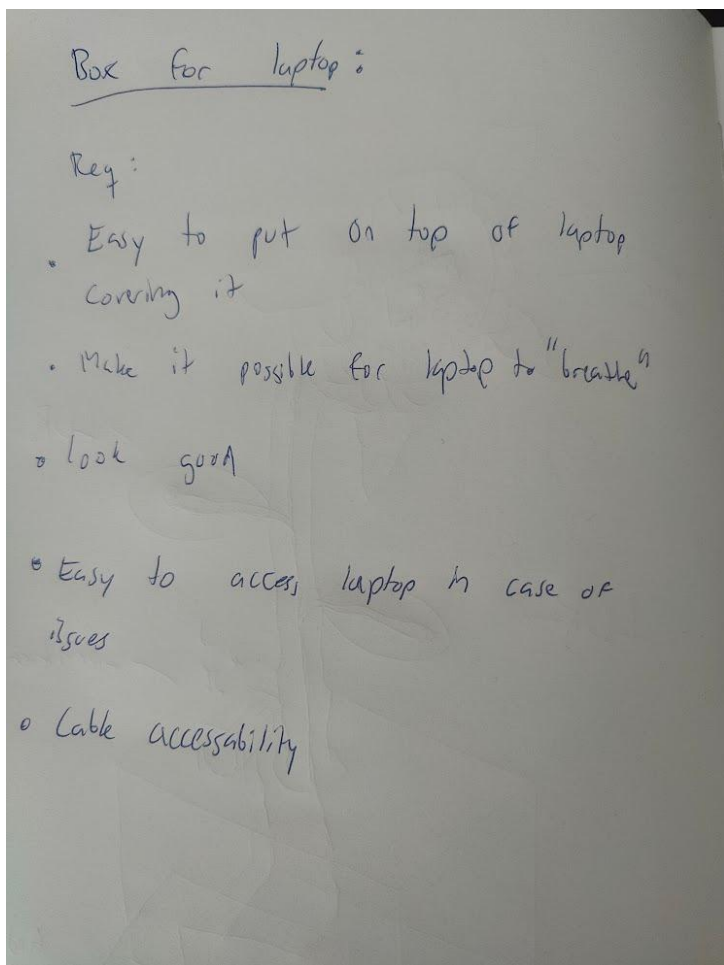 Box for laptop:
Req:
• Easy to put on top of laptop
covering it
• Make it possible for laptop to "breathe"
• look good
• Easy to access laptop in case of
issues
• Cable accessability